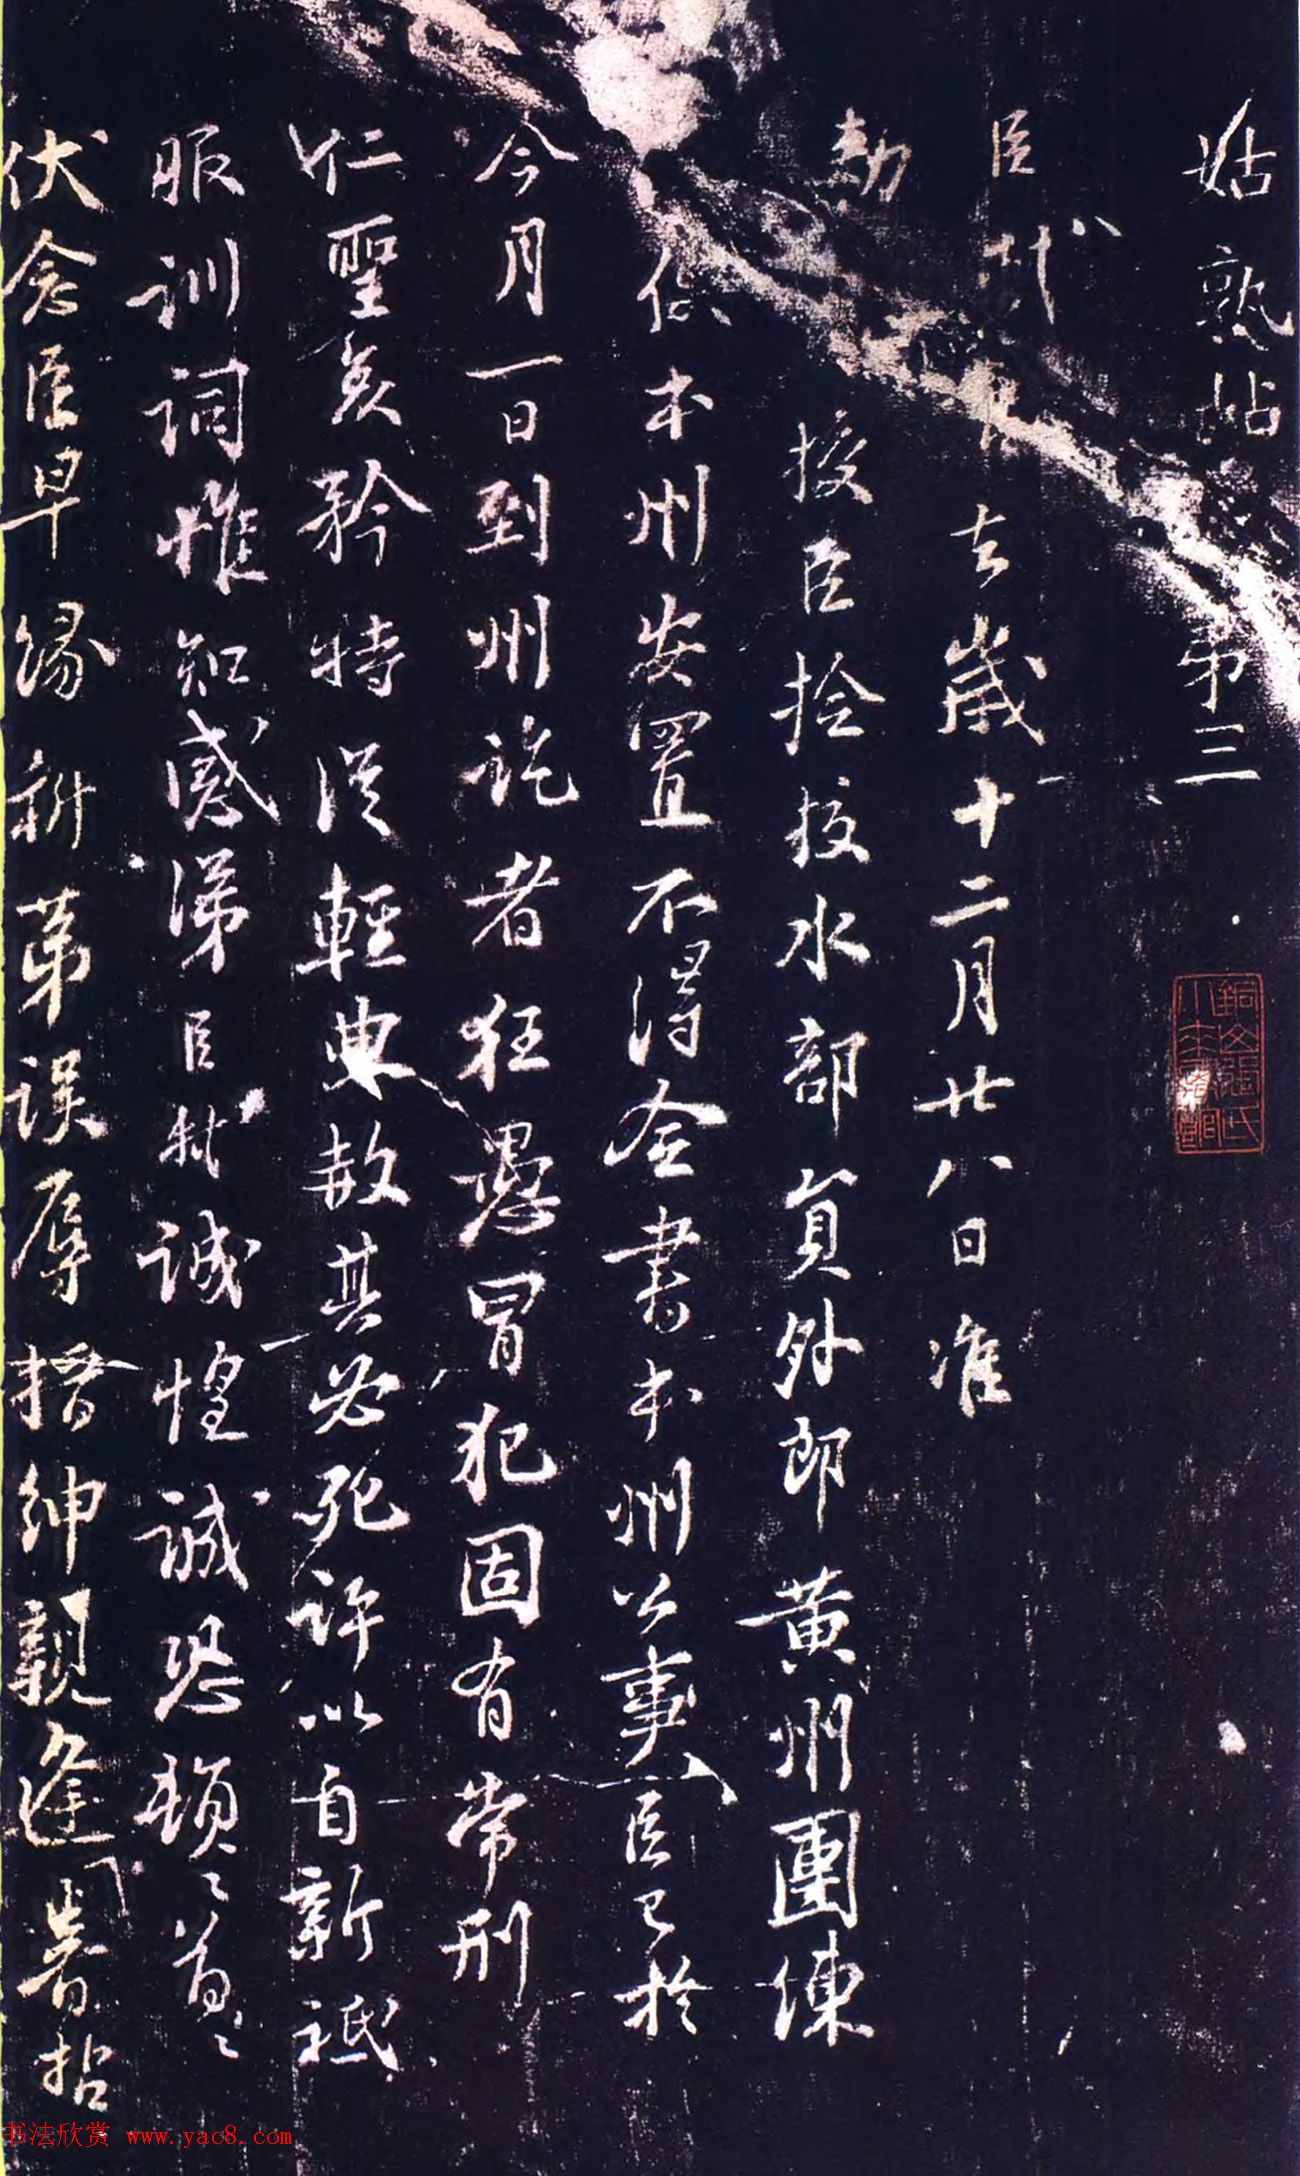 姑熟帖 第三
臣軾言去歲十二月廿八日准
勑
授臣撿挍水部貟外郎黄州團練
使本州安置不得佥書本州公事臣已於
今月一日到州訖者狂愚冒犯固有常刑
仁聖矜特從輕典赦其必死許以自新祗
服訓詞惟知感涕臣軾誠惶誠恐頓〻首〻
伏念臣早緣科第誤辱搢紳親逢睿哲
书法欣赏 www.yac8.com